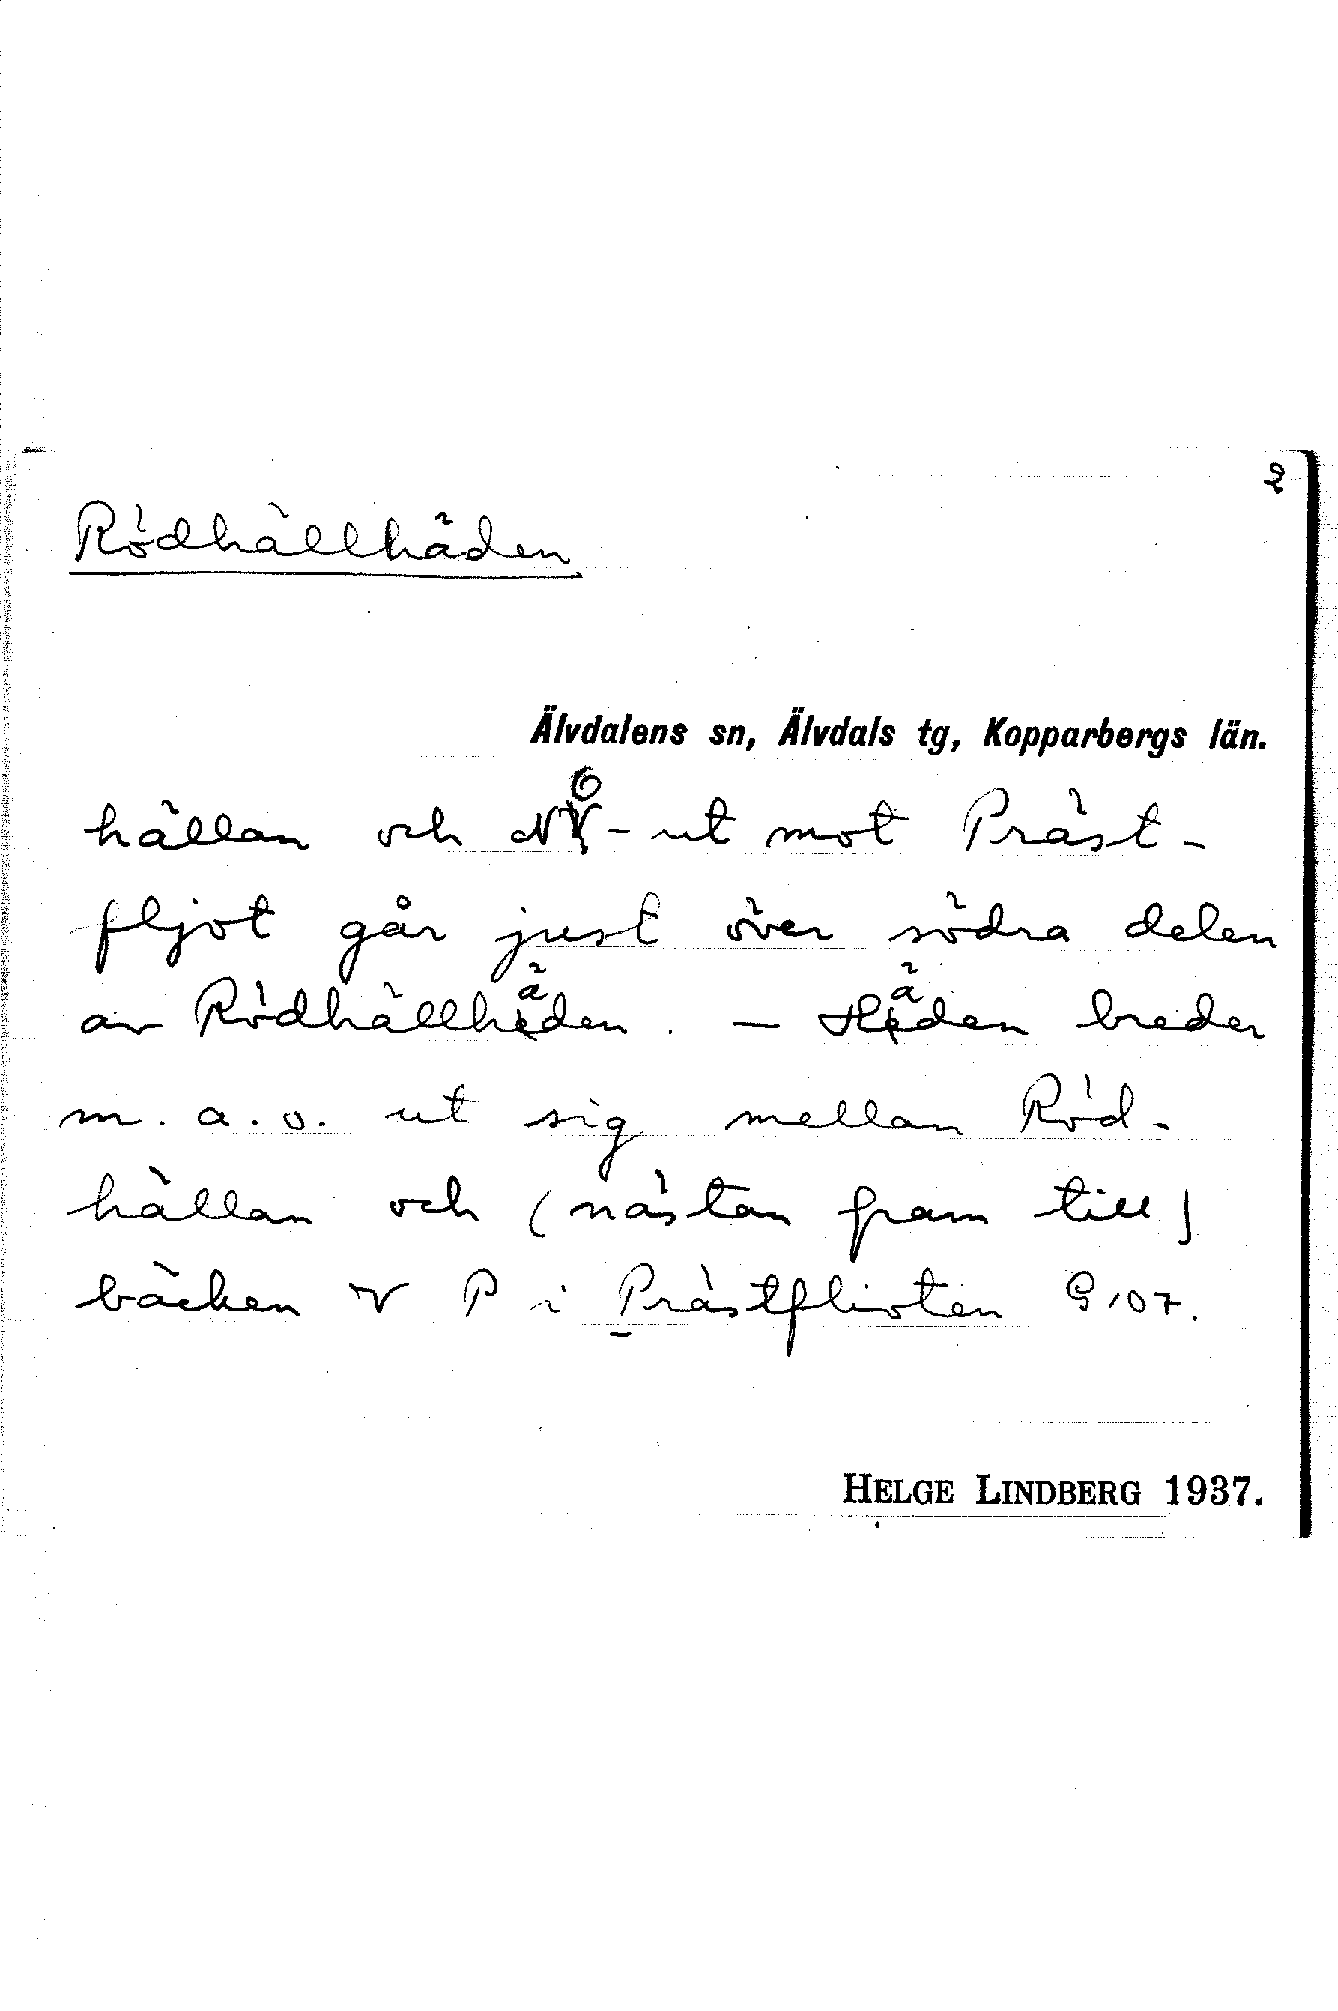 2
Rödhällhäden
Älvdalens sn, Älvdals tg, Kopparbergs län.
hällan och NO-ut mot Präst-
fljot går just över södra delen
av Rödhällhäden. — Häden breder
m. a. o. ut sig mellan Röd-
hällan och (nästan fram till)
bäcken V P i Prästflioten G 107.
HELGE LINDBERG 1937.